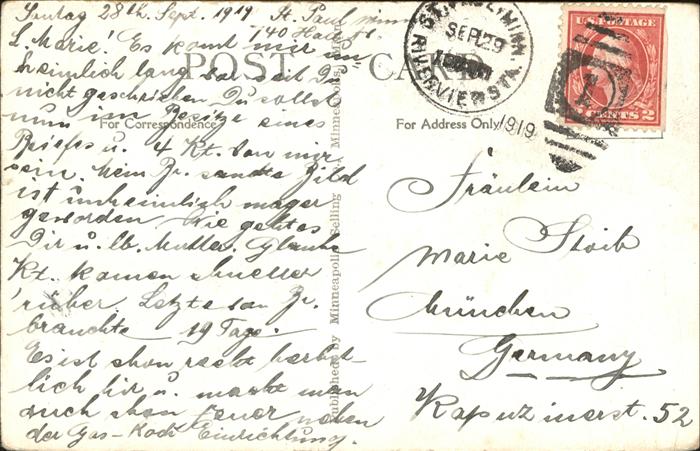 Sontag 28th Sept. 1919 St. Paul Minn
740 Hall St.
L. Marie! Es komt mir un
heimlich lang vor seit Du
nicht geschrieben Du sollst
nun im Besitze eines
Briefes u. 4 Kt. von mir
sein. Mein Br. sandte Bild
ist unheimlich mager
geworden Wie geht es
Dir u. lb. Mutter. Glaube
Kt. komen schneller
rüber. Letzte von Br.
brauchte 19 Tage.
Es ist schon recht herbst-
lich hir u. macht man
auch schon Feuer neben
der Gas-Koch Einrichtung.
POST CARD
For Correspondence
For Address Only
Published by Minneapolis Selling Co., Minneapolis, Minn.
ST. PAUL, MINN.
SEP 29
1919
RIVERVIEW STA.
U.S. POSTAGE
2 CENTS 2
Fräulein
Marie Stoib
München
Germany
Kapuzinerst. 52